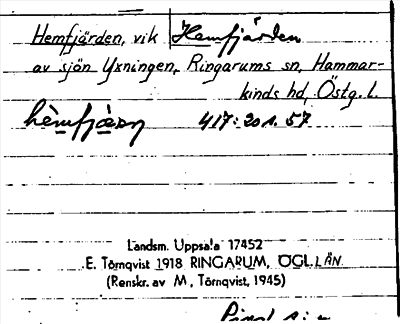 Hemfjärden, vik Hemfjärden
av sjön Yxningen, Ringarums sn, Hammar-
kinds hd, Östg. l.
hèmfjà̱ṣṇ 417: 201. 57
Landsm. Uppsala 17452
E. Törnqvist 1918 RINGARUM, ÖGL. LÄN.
(Renskr. av M. Törnqvist, 1945)